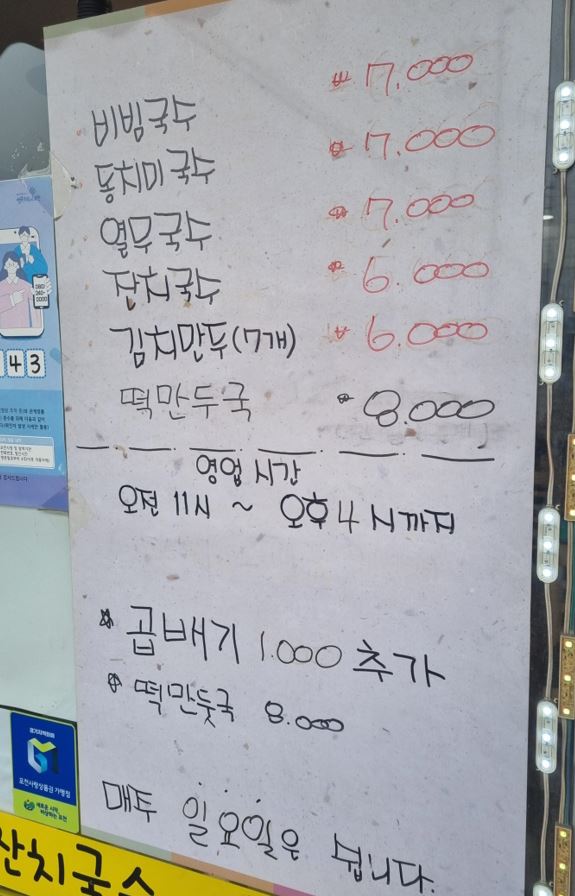 비빔국수 ₩ 7.000
동치미국수 ₩ 7.000
열무국수 ₩ 7.000
잔치국수 ₩ 6.000
김치만두(7개) ₩ 6.000
떡만두국 ₩ 8.000
영업시간
오전 11시 ~ 오후 4시까지
곱배기 1.000 추가
떡만둣국 8.000
매주 일요일은 쉽니다.
43
경기지역화폐
포천사랑상품권 가맹점
잔치국수